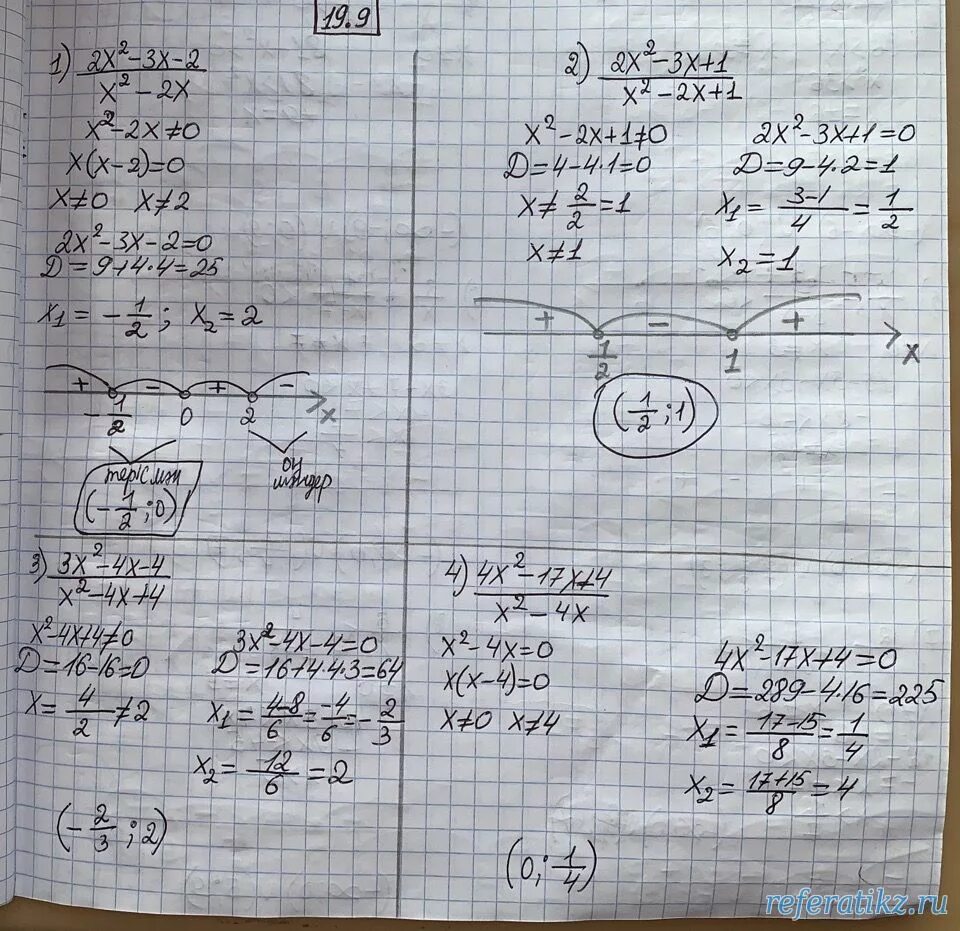 19.9
1) (2x²-3x-2)/(x²-2x)
x²-2x≠0
x(x-2)=0
x≠0 x≠2
2x²-3x-2=0
D=9+4·4=25
x₁=-1/2; x₂=2
+ - + -
-1/2 0 2 x
теріс мән
(-1/2;0)
оң
мәндер
2) (2x²-3x+1)/(x²-2x+1)
x²-2x+1≠0
D=4-4·1=0
x≠2/2=1
x≠1
2x²-3x+1=0
D=9-4·2=1
x₁=(3-1)/4=1/2
x₂=1
+ - +
1/2 1 x
(1/2;1)
3) (3x²-4x-4)/(x²-4x+4)
x²-4x+4≠0
D=16-16=0
x=4/2≠2
3x²-4x-4=0
D=16+4·4·3=64
x₁=(4-8)/6=-4/6=-2/3
x₂=12/6=2
(-2/3;2)
4) (4x²-17x+4)/(x²-4x)
x²-4x=0
x(x-4)=0
x≠0 x≠4
4x²-17x+4=0
D=289-4·16=225
x₁=(17-15)/8=1/4
x₂=(17+15)/8=4
(0;1/4)
referatikz.ru